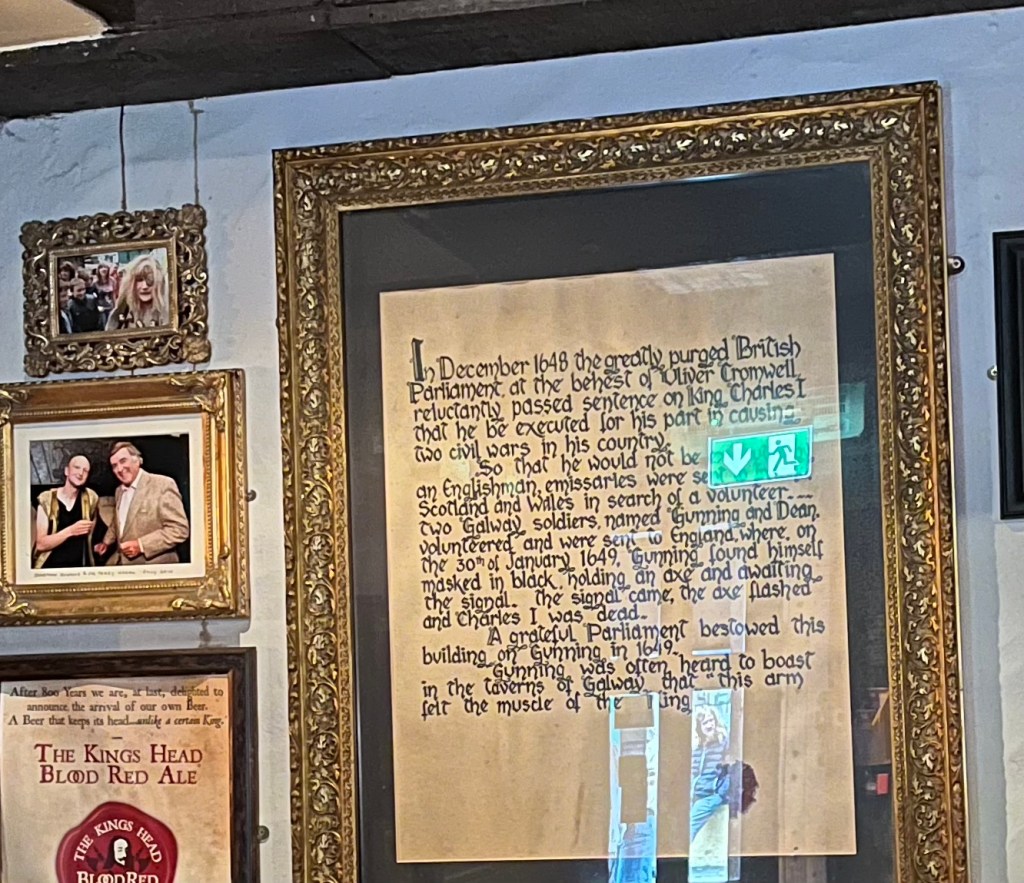 In December 1648 the greatly purged British
Parliament, at the behest of Oliver Cromwell,
reluctantly passed sentence on King Charles I
that he be executed for his part in causing
two civil wars in his country.
So that he would not be
an Englishman, emissaries were
Scotland and Wales in search of a volunteer....
Two Galway soldiers, named Gunning and Dean,
volunteered and were sent to England, where, on
the 30th of January 1649, Gunning found himself
masked in black, holding an axe and awaiting
the signal. The signal came, the axe flashed
and Charles I was dead.
A grateful Parliament bestowed this
building on Gunning in 1649.
Gunning was often heard to boast
in the taverns of Galway that "this arm
felt the muscle of the King
After 800 Years we are, at last, delighted to
announce the arrival of our own Beer.
A Beer that keeps its head...unlike a certain King.
THE KINGS HEAD
BLOOD RED ALE
THE KINGS HEAD
BLOOD RED